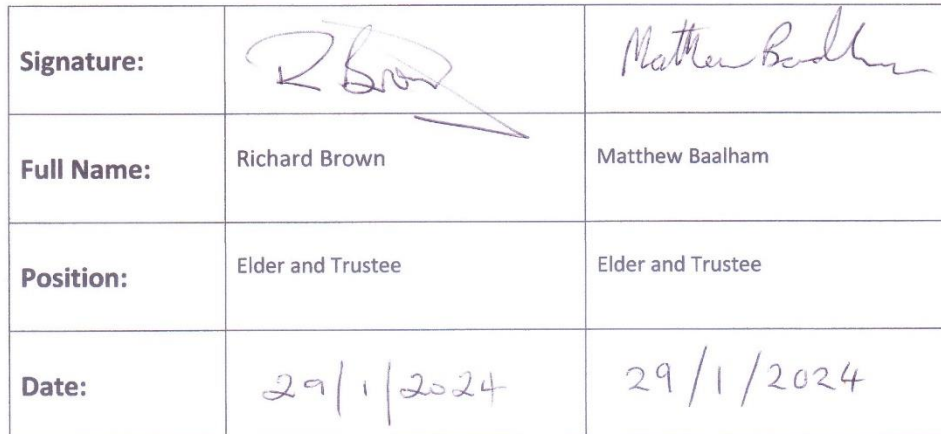 Signature: R Brown Matthew Baalham
Full Name: Richard Brown Matthew Baalham
Position: Elder and Trustee Elder and Trustee
Date: 29/1/2024 29/1/2024